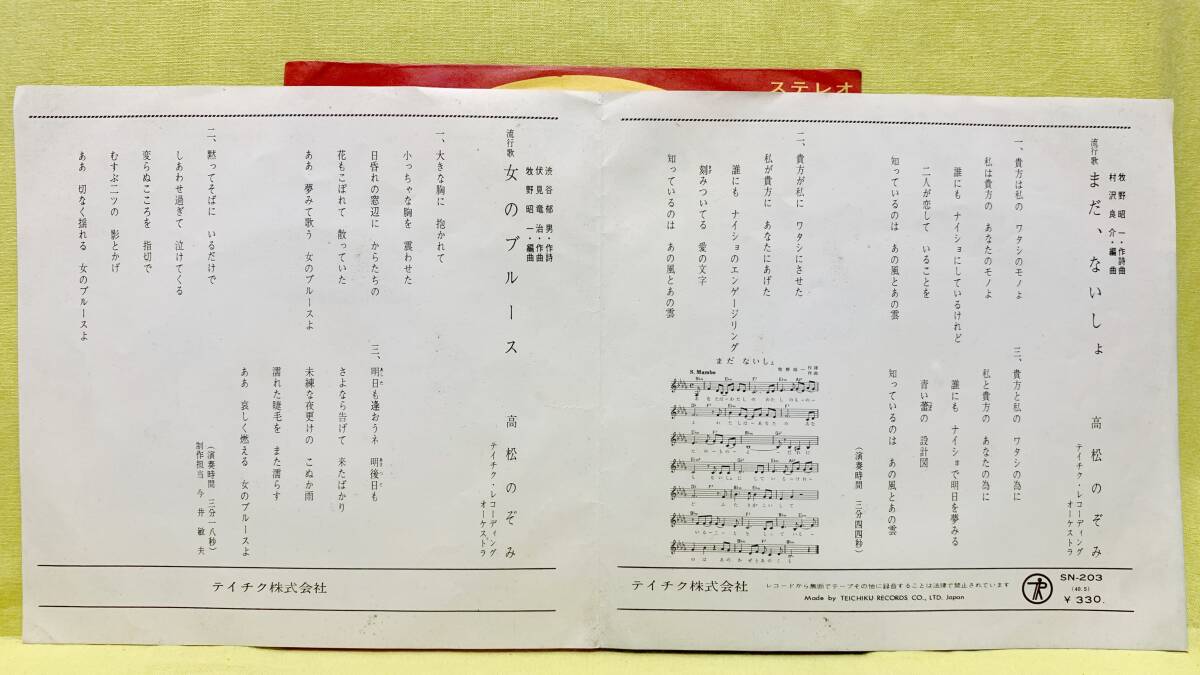 ステレオ
流行歌
まだ、ないしょ
牧野昭一・作詩曲
村沢良介・編曲
高松のぞみ
テイチク・レコーディング
オーケストラ
一、貴方は私の ワタシのモノよ
私は貴方の あなたのモノよ
誰にも ナイショにしているけれど
二人が恋して いることを
知っているのは あの風とあの雲
二、貴方が私に ワタシにさせた
私が貴方に あなたにあげた
誰にも ナイショのエンゲージリング
刻みついてる 愛の文字
知っているのは あの風とあの雲
三、貴方と私の ワタシの為に
私と貴方の あなたの為に
誰にも ナイショで明日を夢みる
青い蕾の 設計図
知っているのは あの風とあの雲
(演奏時間 三分四四秒)
まだ ないしょ
S. Mambo
テイチク株式会社
レコードから無断でテープその他に録音することは法律で禁止されています
Made by TEICHIKU RECORDS CO., LTD. Japan
SN-203
(40.5)
¥330.
流行歌
女のブルース
渋谷郁男・作詩
伏見竜治・作曲
牧野昭一・編曲
高松のぞみ
テイチク・レコーディング
オーケストラ
一、大きな胸に 抱かれて
小っちゃな胸を 震わせた
日昏れの窓辺に からたちの
花もこぼれて 散っていた
ああ 夢みて歌う 女のブルースよ
二、黙ってそばに いるだけで
しあわせ過ぎて 泣けてくる
変らぬこころを 指切で
むすぶ二ツの 影とかげ
ああ 切なく揺れる 女のブルースよ
三、明日も逢おうネ 明後日も
さよなら告げて 来たばかり
未練な夜更けの こぬか雨
濡れた睫毛を また濡らす
ああ 哀しく燃える 女のブルースよ
(演奏時間 三分一八秒)
制作担当 今井敏夫
テイチク株式会社